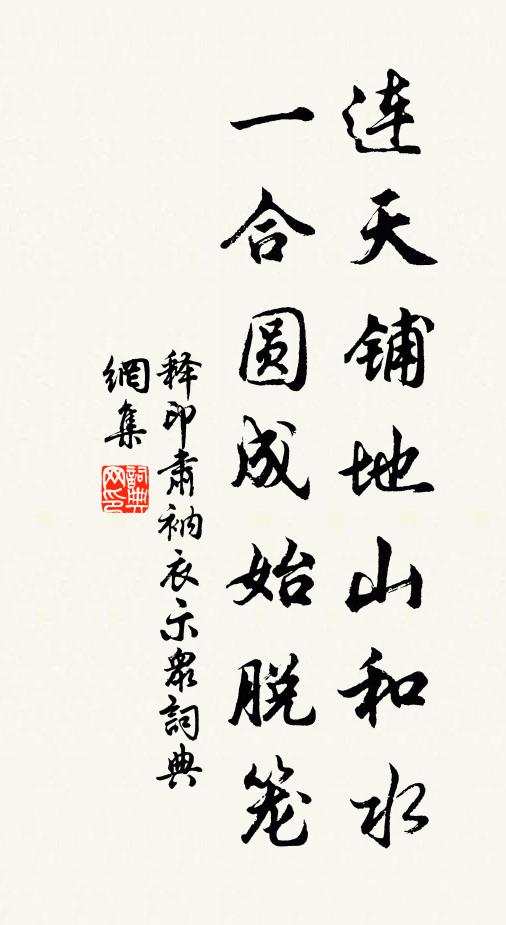 连天铺地山和水
一合圆成始脱笼
释印肃衲衣示眾詞典
網集
詞典
网印